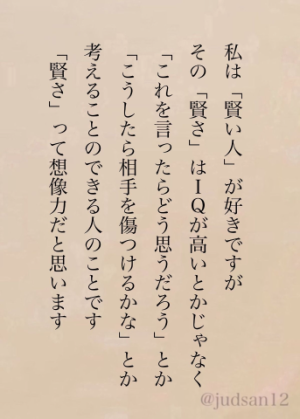 私は「賢い人」が好きですが
その「賢さ」はIQが高いとかじゃなく
「これを言ったらどう思うだろう」とか
「こうしたら相手を傷つけるかな」とか
考えることのできる人のことです
「賢さ」って想像力だと思います
@judsan12